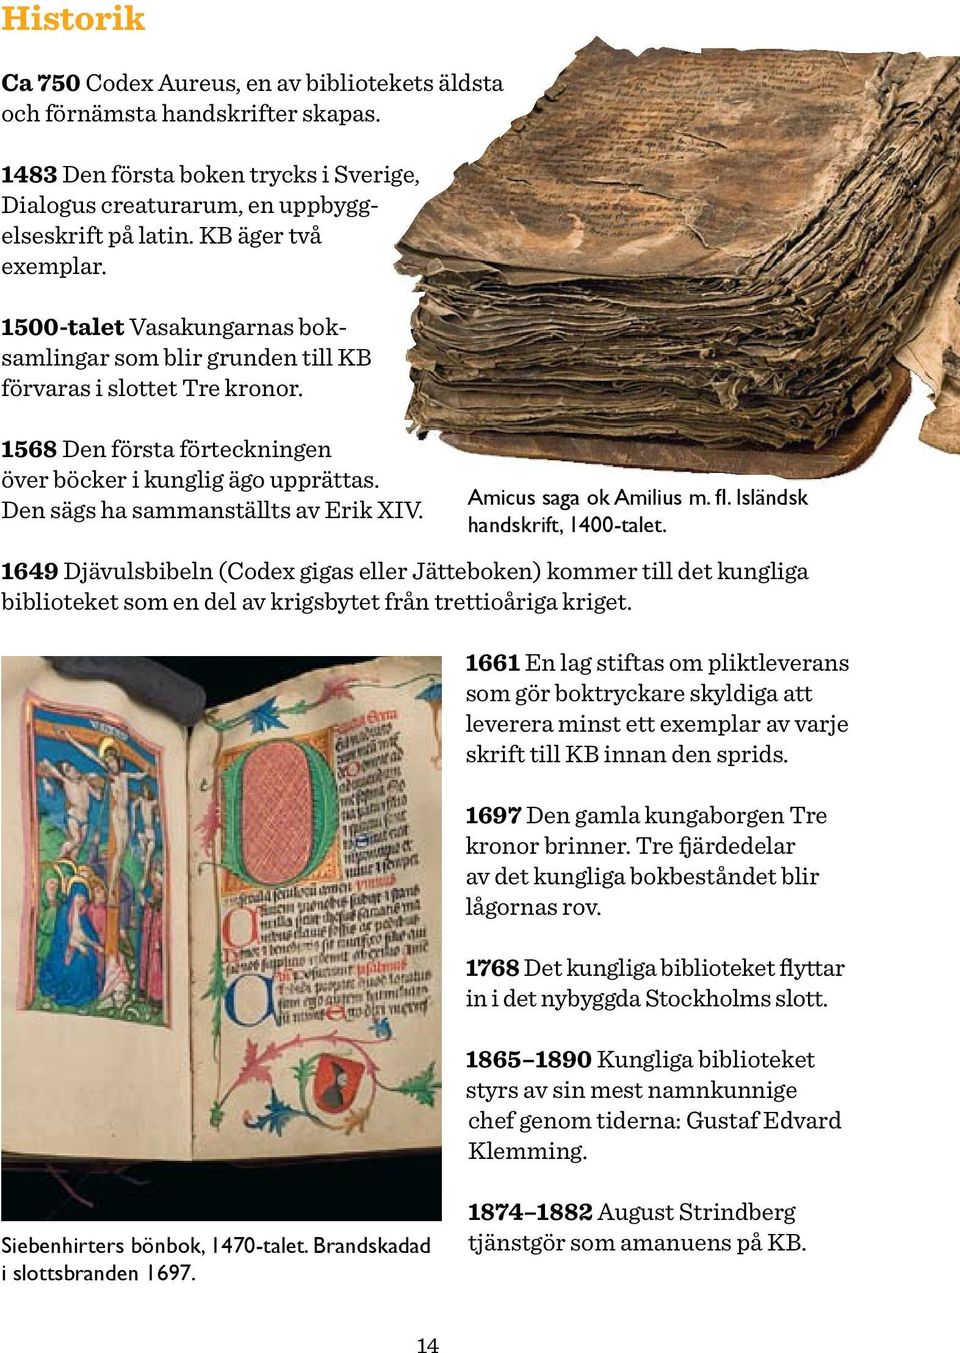 Historik
Ca 750 Codex Aureus, en av bibliotekets äldsta
och förnämsta handskrifter skapas.
1483 Den första boken trycks i Sverige,
Dialogus creaturarum, en uppbygg-
elseskrift på latin. KB äger två
exemplar.
1500-talet Vasakungarnas bok-
samlingar som blir grunden till KB
förvaras i slottet Tre kronor.
1568 Den första förteckningen
över böcker i kunglig ägo upprättas.
Den sägs ha sammanställts av Erik XIV.
Amicus saga ok Amilius m. fl. Isländsk
handskrift, 1400-talet.
1649 Djävulsbibeln (Codex gigas eller Jätteboken) kommer till det kungliga
biblioteket som en del av krigsbytet från trettioåriga kriget.
1661 En lag stiftas om pliktleverans
som gör boktryckare skyldiga att
leverera minst ett exemplar av varje
skrift till KB innan den sprids.
1697 Den gamla kungaborgen Tre
kronor brinner. Tre fjärdedelar
av det kungliga bokbeståndet blir
lågornas rov.
1768 Det kungliga biblioteket flyttar
in i det nybyggda Stockholms slott.
1865–1890 Kungliga biblioteket
styrs av sin mest namnkunnige
chef genom tiderna: Gustaf Edvard
Klemming.
1874–1882 August Strindberg
tjänstgör som amanuens på KB.
Siebenhirters bönbok, 1470-talet. Brandskadad
i slottsbranden 1697.
14